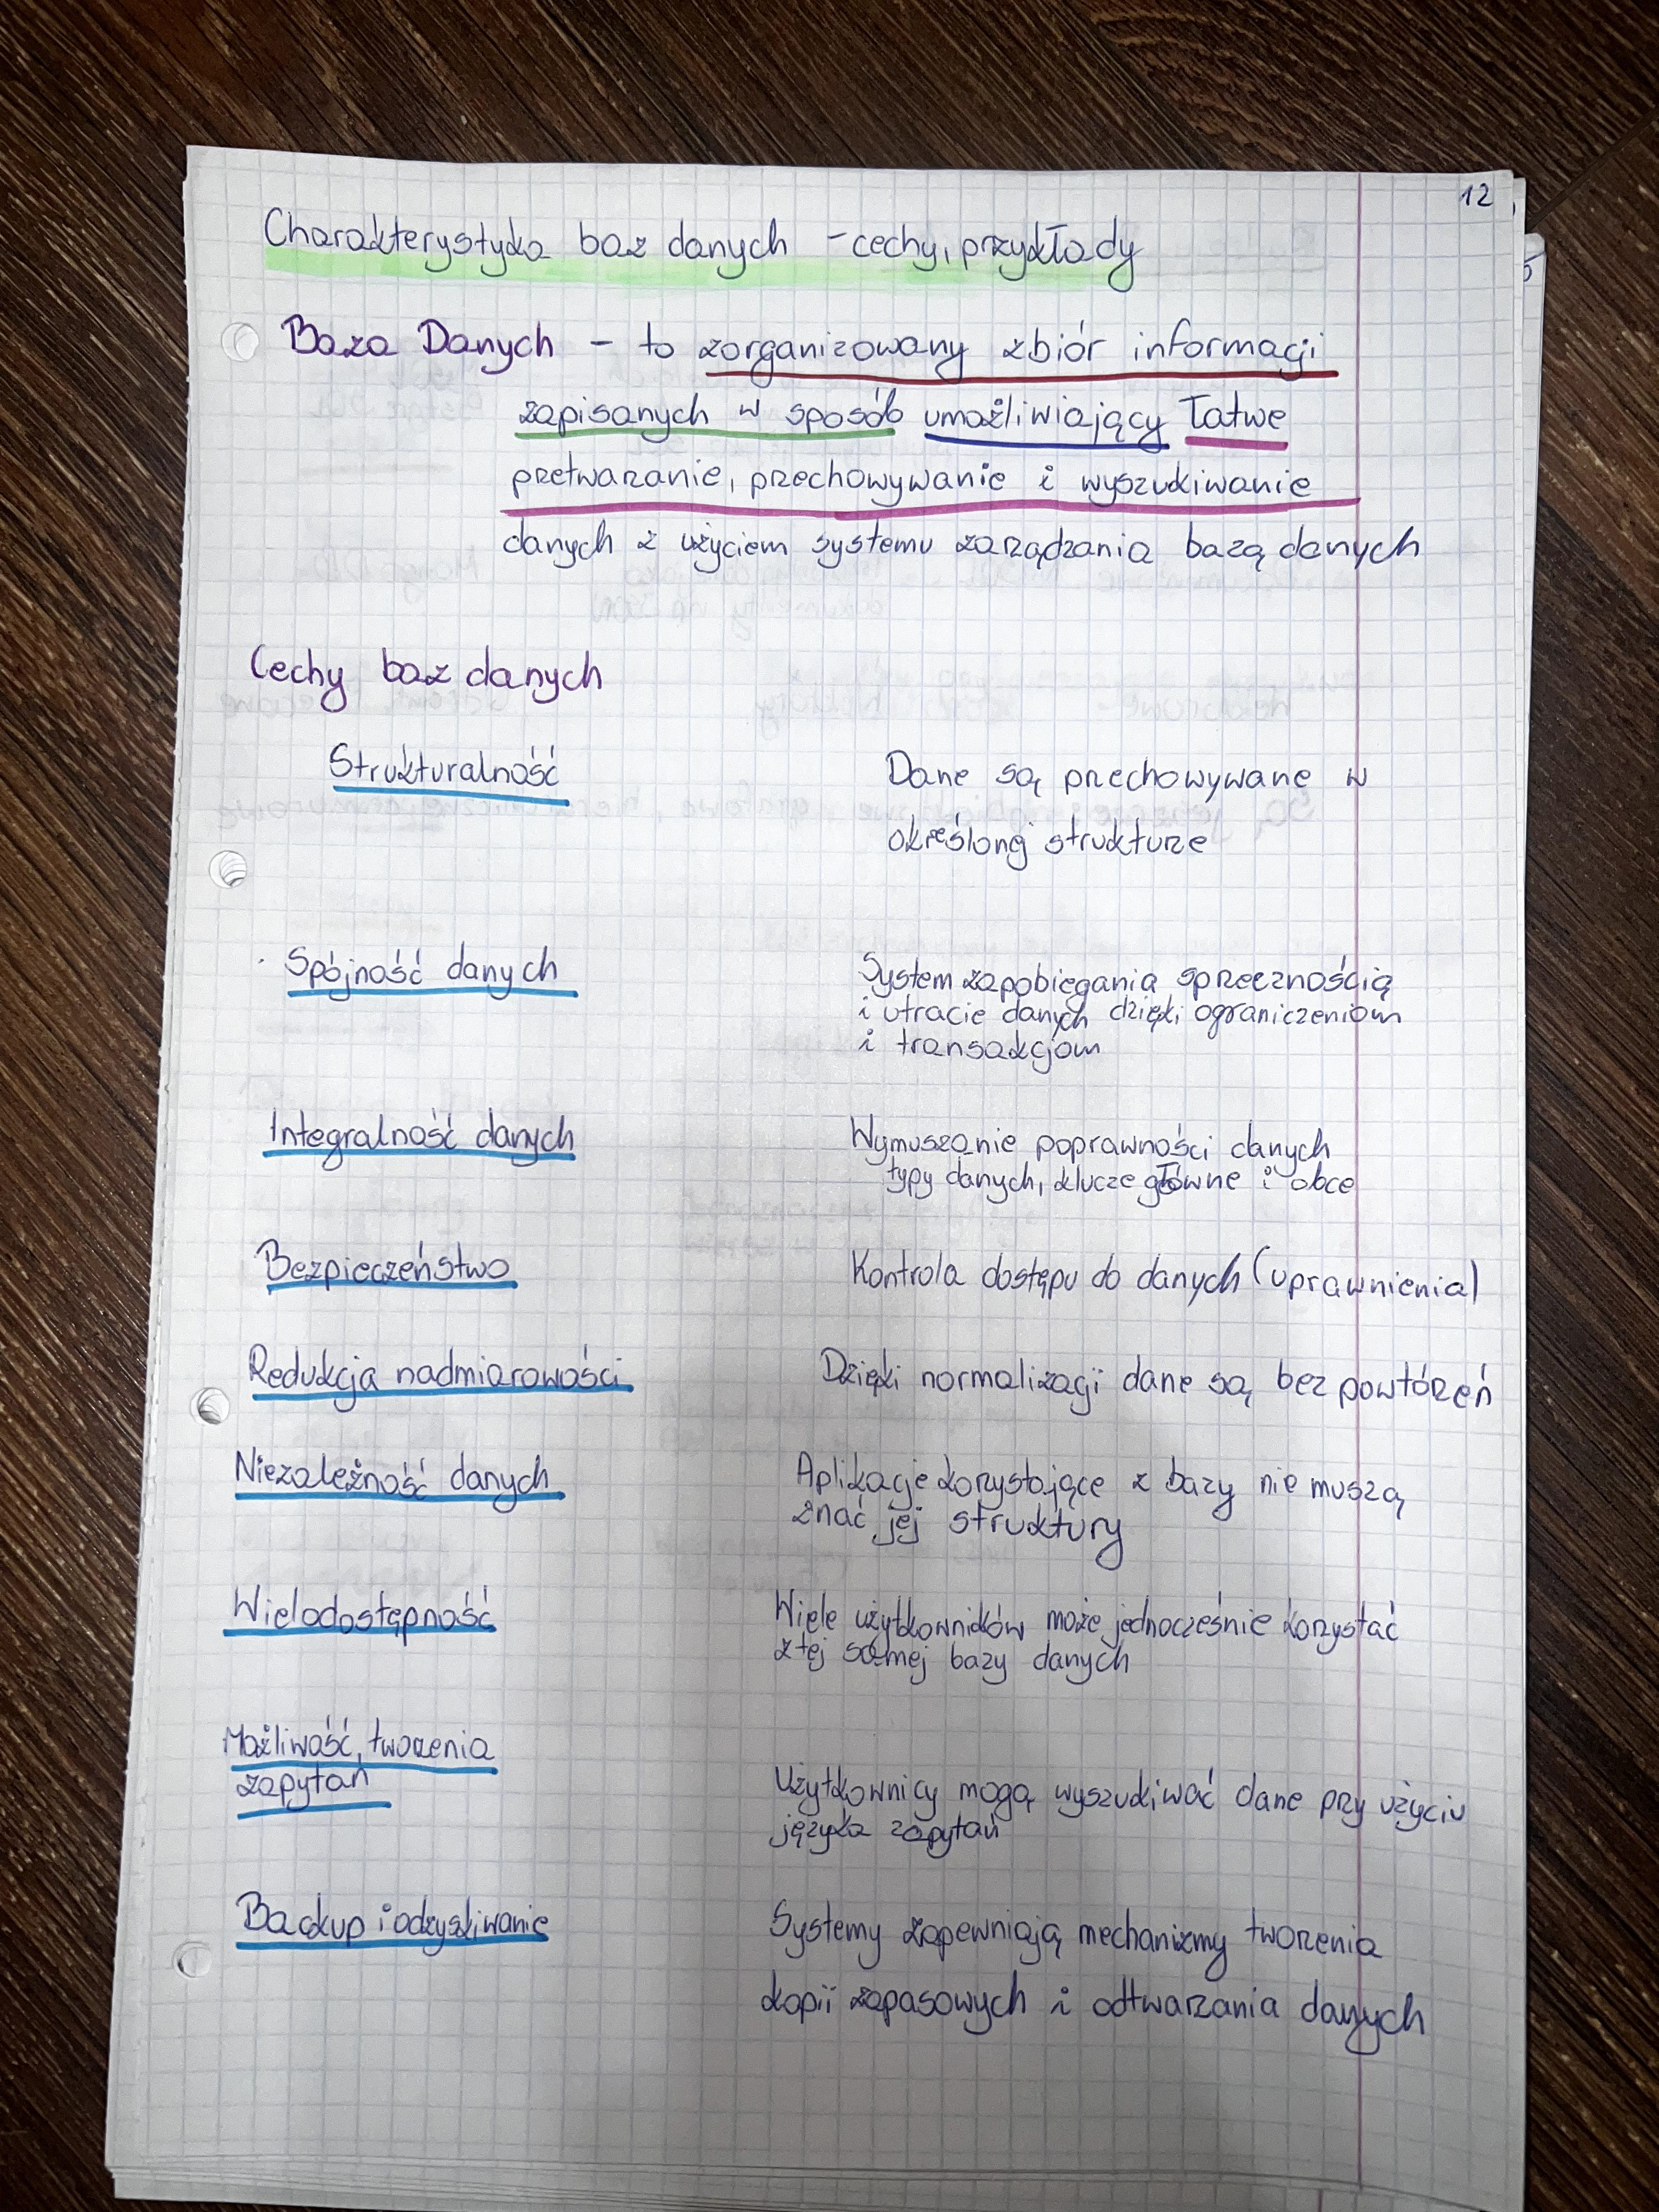 12
Charakterystyka baz danych - cechy, przykłady
Baza Danych - to zorganizowany zbiór informacji
zapisanych w sposób umożliwiający łatwe
przetwarzanie, przechowywanie i wyszukiwanie
danych z użyciem systemu zarządzania bazą danych
Cechy baz danych
Strukturalność
Dane są przechowywane w
określonej strukturze
Spójność danych
System zapobiegania sprzecznością
i utracie danych dzięki ograniczeniom
i transakcjom
Integralność danych
Wymuszanie poprawności danych
typy danych, klucze główne i obce
Bezpieczeństwo
Kontrola dostępu do danych (uprawnienia)
Redukcja nadmiarowości
Dzięki normalizacji dane są bez powtórzeń
Niezależność danych
Aplikacje korzystające z bazy nie muszą
znać jej struktury
Wielodostępność
Wiele użytkowników może jednocześnie korzystać
z tej samej bazy danych
Możliwość tworzenia
zapytań
Użytkownicy mogą wyszukiwać dane przy użyciu
języka zapytań
Backup i odzyskiwanie
Systemy zapewniają mechanizmy tworzenia
kopii zapasowych i odtwarzania danych